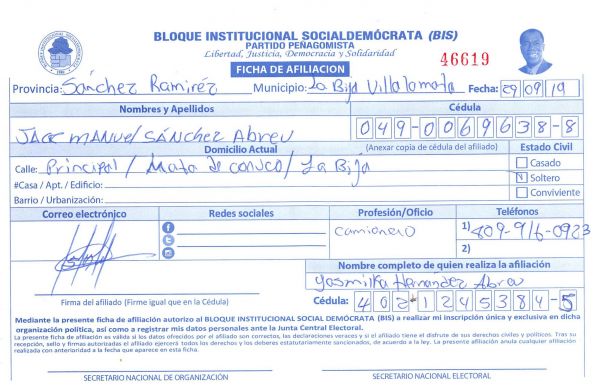 BLOQUE INSTITUCIONAL SOCIALDEMÓCRATA (BIS)
PARTIDO PEÑAGOMISTA
Libertad, Justicia, Democracia y Solidaridad
46619
FICHA DE AFILIACION
Provincia: Sánchez Ramírez Municipio: La Bija Villa la mata Fecha: 29/09/19
Nombres y Apellidos Cédula
Jack manuel SÁNchez Abreu 049-0069638-8
Domicilio Actual (Anexar copia de cédula del afiliado) Estado Civil
Calle: Principal / Mata de conuco / La Bija Casado
#Casa / Apt. / Edificio: Soltero
Barrio / Urbanización: Conviviente
Correo electrónico Redes sociales Profesión/Oficio Teléfonos
camionero 1) 809-916-0923
2)
Nombre completo de quien realiza la afiliación
Yasmilka Hernandez Abreu
Firma del afiliado (Firme igual que en la Cédula) Cédula: 402-1245384-5
Mediante la presente ficha de afiliación autorizo al BLOQUE INSTITUCIONAL SOCIAL DEMÓCRATA (BIS) a realizar mi inscripción única y exclusiva en dicha
organización política, así como a registrar mis datos personales ante la Junta Central Electoral.
La presente ficha de afiliación es válida si los datos ofrecidos por el afiliado son correctos, las declaraciones veraces y si el afiliado tiene el disfrute de sus derechos civiles y políticos. Tras su
recepción, sello y firmas autorizadas el afiliado ejercerá todos los derechos y los deberes estatutariamente sancionados, de acuerdo a la ley. La presente afiliación anula cualquier afiliación
realizada con anterioridad a la fecha que aparece en esta ficha.
SECRETARIO NACIONAL DE ORGANIZACIÓN SECRETARIO NACIONAL ELECTORAL